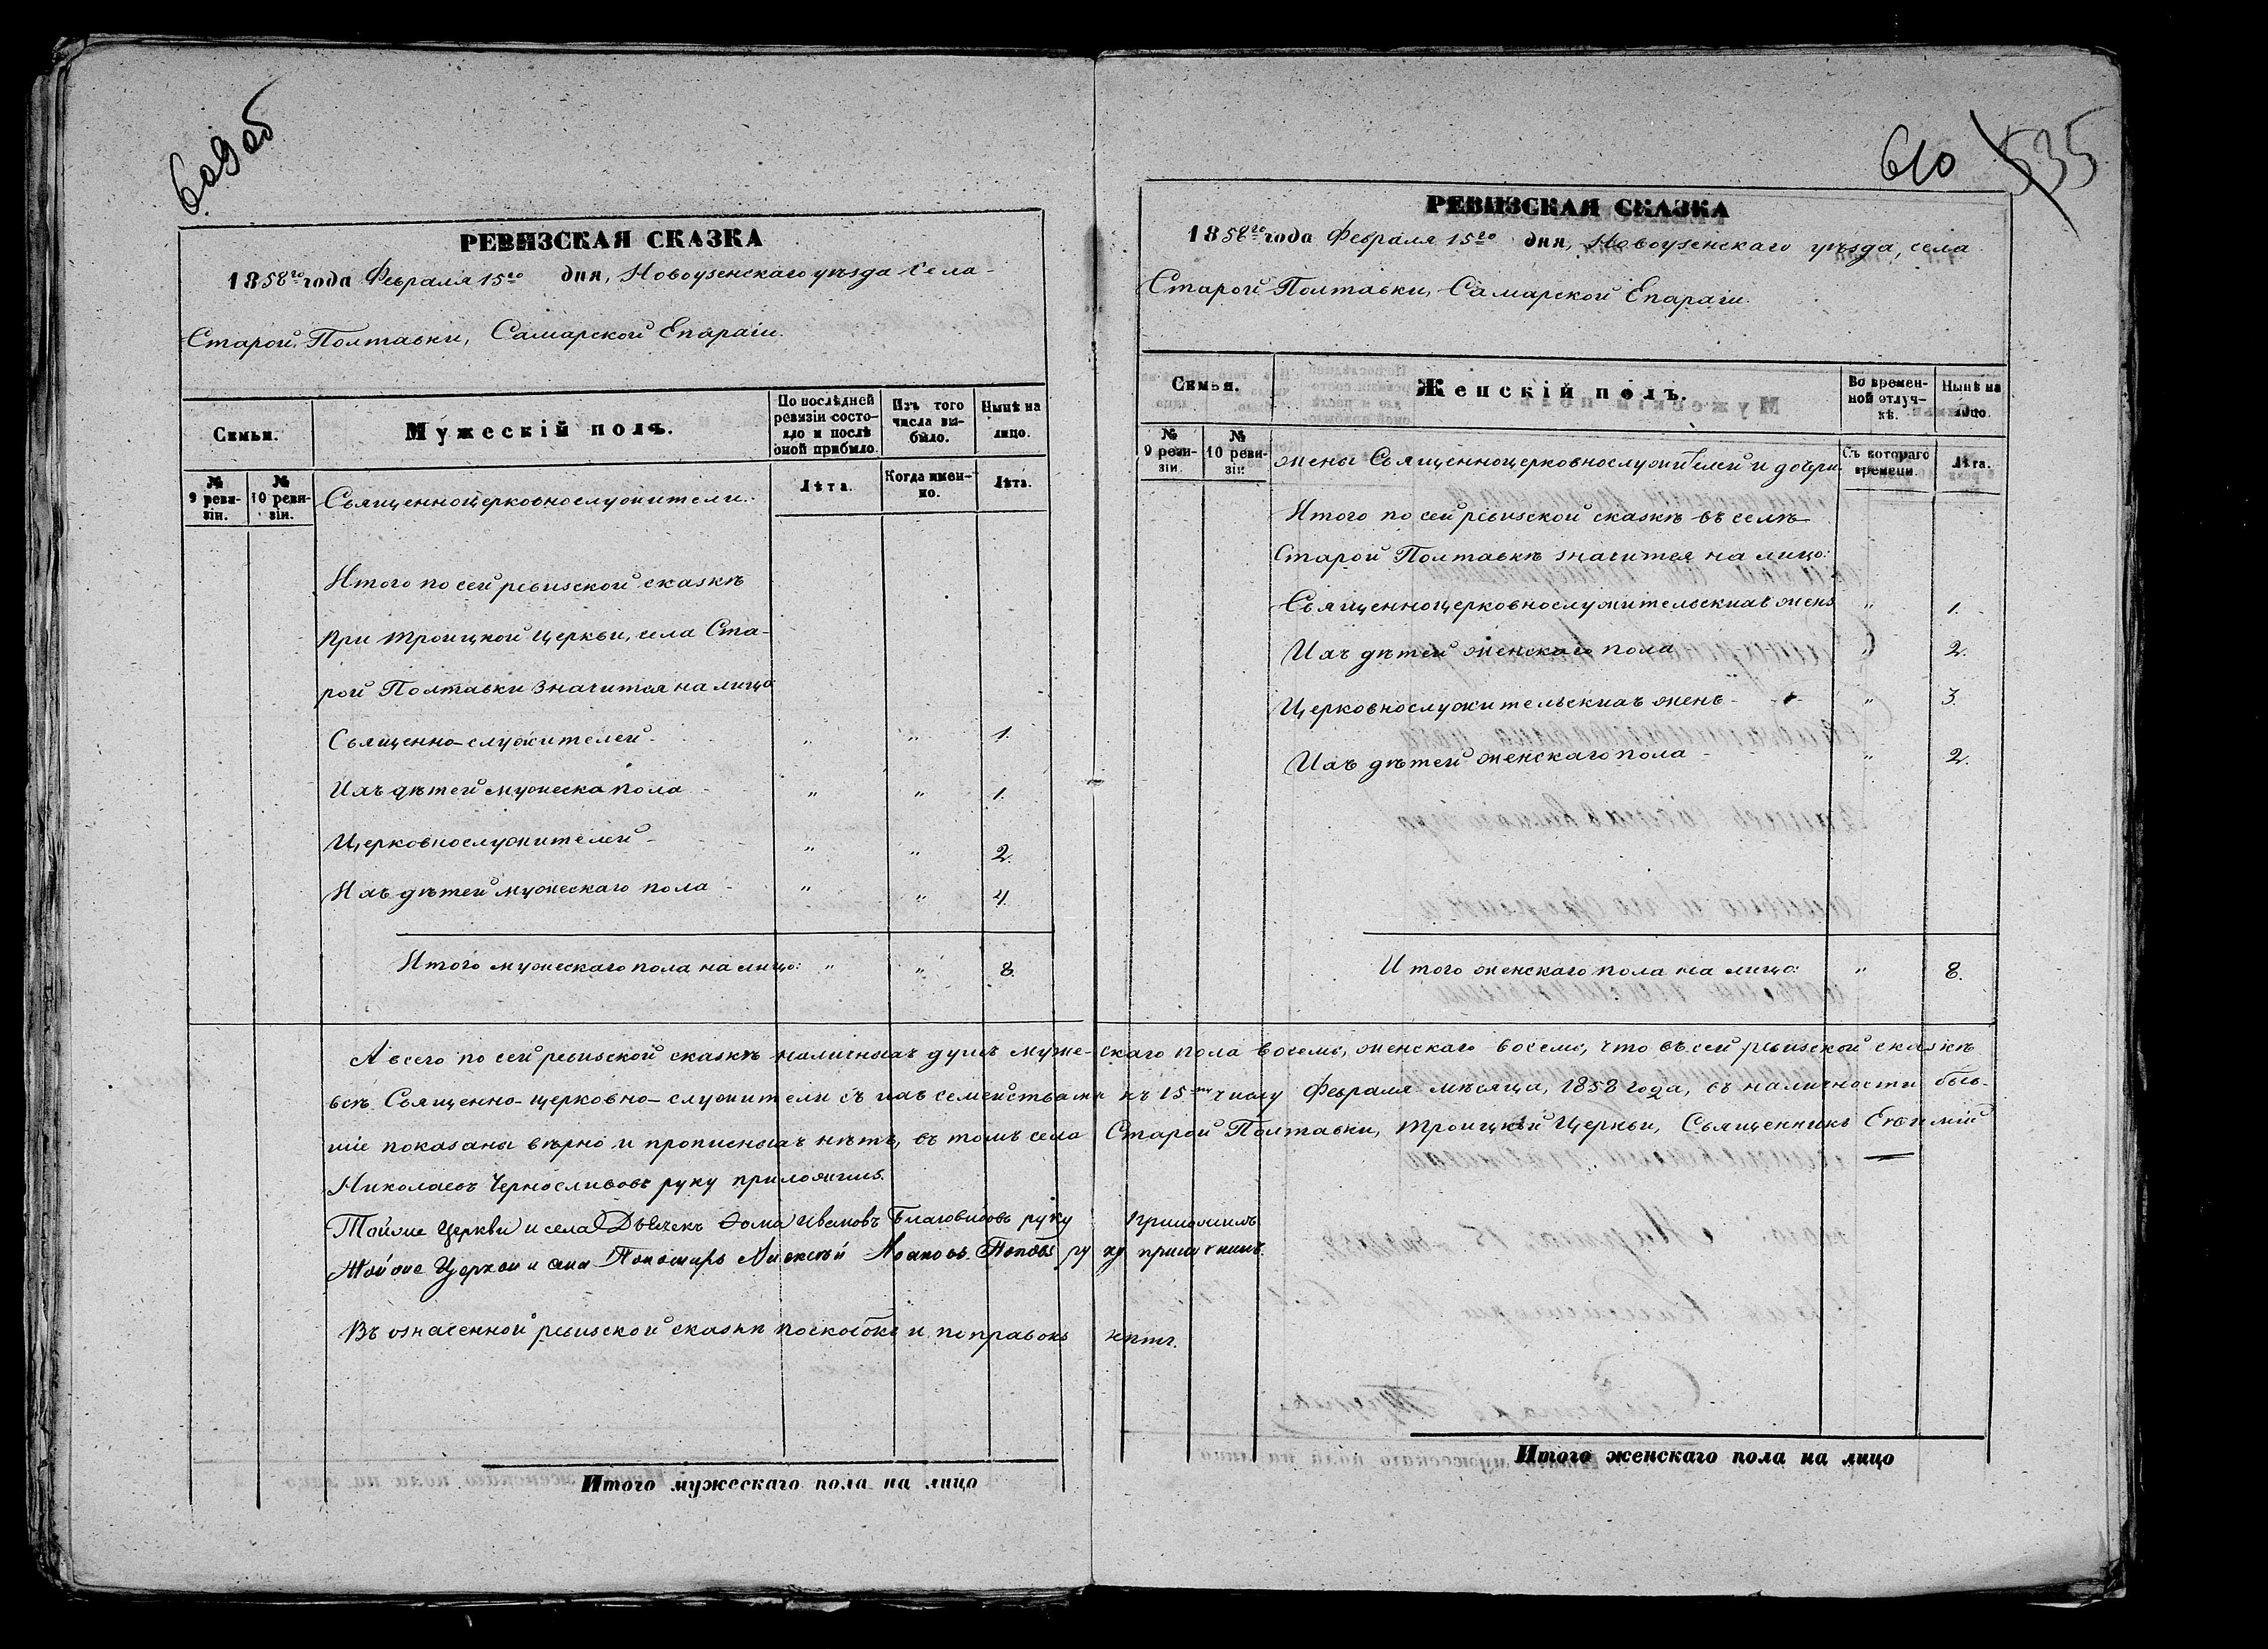 609 об
РЕВИЗСКАЯ СКАЗКА
1858го года Февраля 15го дня, Новоузенскаго уѣзда села
Старой Полтавки, Самарской Епархіи.
Семьи.
Мужескій полъ.
По послѣдней ревизіи состояло и послѣ оной прибыло.
Изъ того числа выбыло.
Нынѣ на лицо.
№ 9 ревизіи.
№ 10 ревизіи.
Священноцерковнослужители.
Лѣта.
Когда именно.
Лѣта.
Итого по сей ревизской сказкѣ
при Троицкой Церкви, села Ста-
рой Полтавки значится на лицо
Священно-служителей - " " 1.
Ихъ дѣтей мужеска пола - " " 1.
Церковнослужителей - " " 2.
Ихъ дѣтей мужескаго пола - " " 4.
Итого мужескаго пола на лицо: " " 8.
610 535
РЕВИЗСКАЯ СКАЗКА
1858го года Февраля 15го дня, Новоузенскаго уѣзда, села
Старой Полтавки, Самарской Епархіи.
Семьи.
Женскій полъ.
Во временной отлучкѣ.
Нынѣ на лицо.
№ 9 ревизіи.
№ 10 ревизіи.
жены Священноцерковнослужителей и дочери.
Съ котораго времени.
Лѣта.
Итого по сей ревизской сказкѣ въ селѣ
Старой Полтавкѣ значится на лицо:
Священноцерковнослужительскихъ женъ " 1.
Ихъ дѣтей женскаго пола " 2.
Церковнослужительскихъ женъ - " 3.
Ихъ дѣтей женскаго пола - " 2.
Итого женскаго пола на лицо: " 8.
А всего по сей ревизской сказкѣ наличныхъ душъ муже-скаго пола восемь, женскаго восемь, что въ сей ревизской сказкѣ
всѣ Священно-церковно-служители съ ихъ семействами къ 15му числу Февраля мѣсяца, 1858 года, въ наличности быв-
шіе показаны вѣрно и прописныхъ нѣтъ, въ томъ села Старой Полтавки, Троицкой Церкви, Священникъ Евѳимій
Николаевъ Черносливовъ руку приложилъ.
Тойже Церкви и села Дьячекъ Ѳома Ивановъ Благовидовъ руку приложилъ
Тойже Церкви и села Пономарь Алексѣй Ивановъ Поповъ руку приложилъ.
Въ означенной ревизской сказкѣ поскобокъ и поправокъ нѣтъ.
Итого мужескаго пола на лицо
Итого женскаго пола на лицо